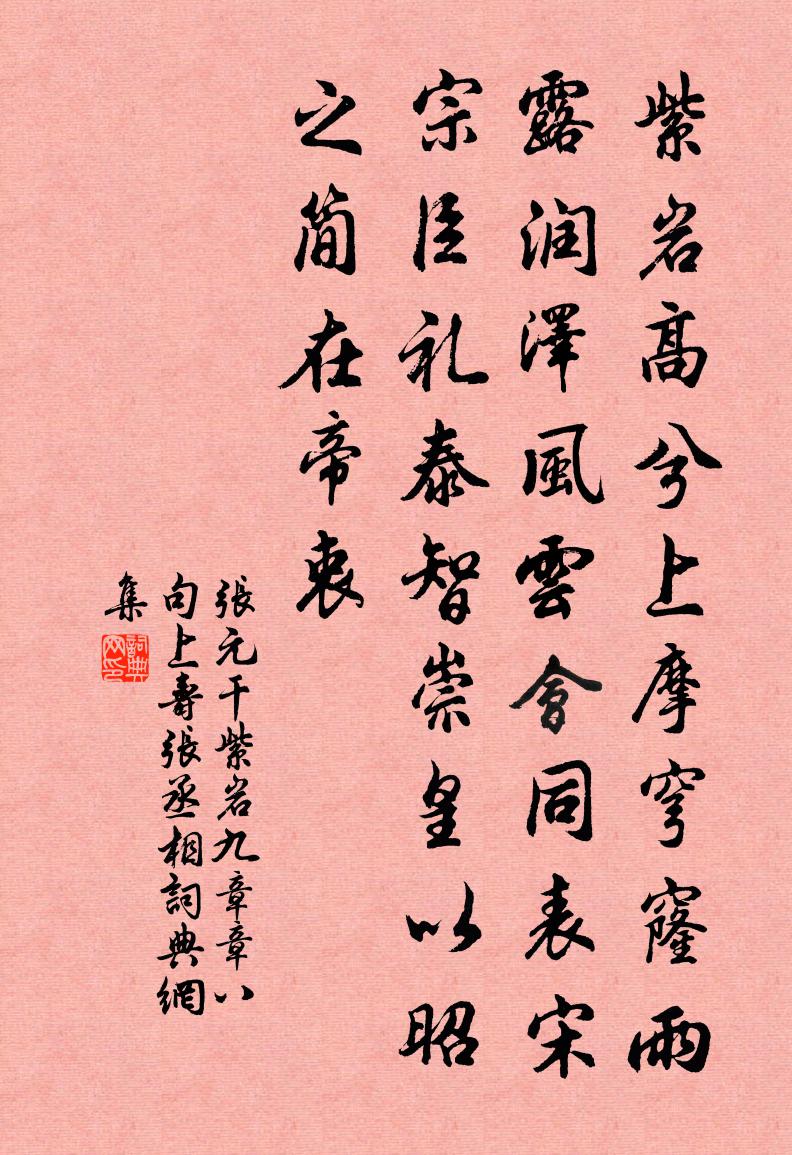 紫岩高兮上摩穹窿雨
露润澤風雲會同表宋
宗臣礼泰智崇皇以昭
之简在帝衷
張元干紫岩九章章八
句上壽張丞相詞典網
集
詞典网印